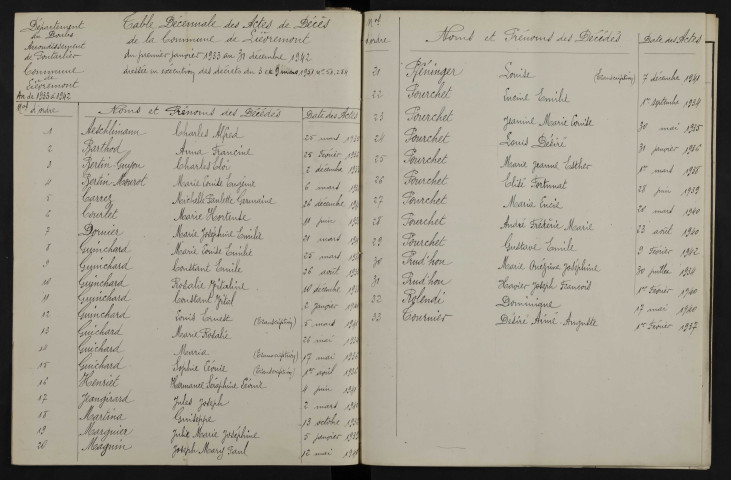 Département
du Doubs
Arrondissement
de Pontarlier
Commune
de
Liévremont
An. de 1933 à 1942
Table Décennale des Actes de Décès
de la Commune de Liévremont
du premier janvier 1933 au 31 décembre 1942
dressée en exécution des décrets du
Nos d'ordre Noms et Prénoms des Décédés Date des Actes
1 Aeschlimann Charles Alfred 25 mars
2 Barthod Anna Francine 25 février
3 Bertin Guyon Charles Eloi 2 décembre
4 Bertin Mourot Marie Louise Eugénie 6 mars
5 Carrez Michelle Paulette Germaine 26 décembre
6 Courlet Marie Hortense 11 juin
7 Dornier Marie Joséphine Emilie 21 mars
8 Guinchard Marie Louise Emilie 25 mars
9 Guinchard Constant Emile 26 août
10 Guinchard Rosalie Vitaline 10 décembre
11 Guinchard Constant Vital 2 janvier
12 Guinchard Louis Ernest (transcription) 5 mars
13 Guichard Marie Rosalie 26 mai
14 Guichard Maria (transcription) 17 mai
15 Guichard Sophie Léonie (transcription) 1er août
16 Henriet Hermance Séraphine Léonie 4 juin
17 Jeangirard Jules Joseph 2 mars
18 Martina Guiseppe 13 octobre
19 Marguier Julie Marie Joséphine 5 janvier
20 Magnin Joseph Marie Paul 12 mai
Nos d'ordre Noms et Prénoms des Décédés Date des Actes
21 Péninger Louise (transcription) 7 décembre 1941
22 Pourchet Lucine Emilie 1er septembre 1934
23 Pourchet Jeanne Marie Louise 30 mai 1935
24 Pourchet Louis Désiré 31 janvier 1936
25 Pourchet Marie Jeanne Esther 1er mars 1938
26 Pourchet Elisé Fortunat 28 juin 1939
27 Pourchet Maria Lucie 20 mars 1940
28 Pourchet André Frédéric Marie 23 août 1940
29 Pourchet Gustave Emile 9 février 1942
30 Prud'hon Marie Onézime Joséphine 30 juillet 1934
31 Prud'hon Xavier Joseph François 1er février 1940
32 Rolendi Dominique 17 mai 1940
33 Tournier Désiré Aimé Auguste 1er février 1937